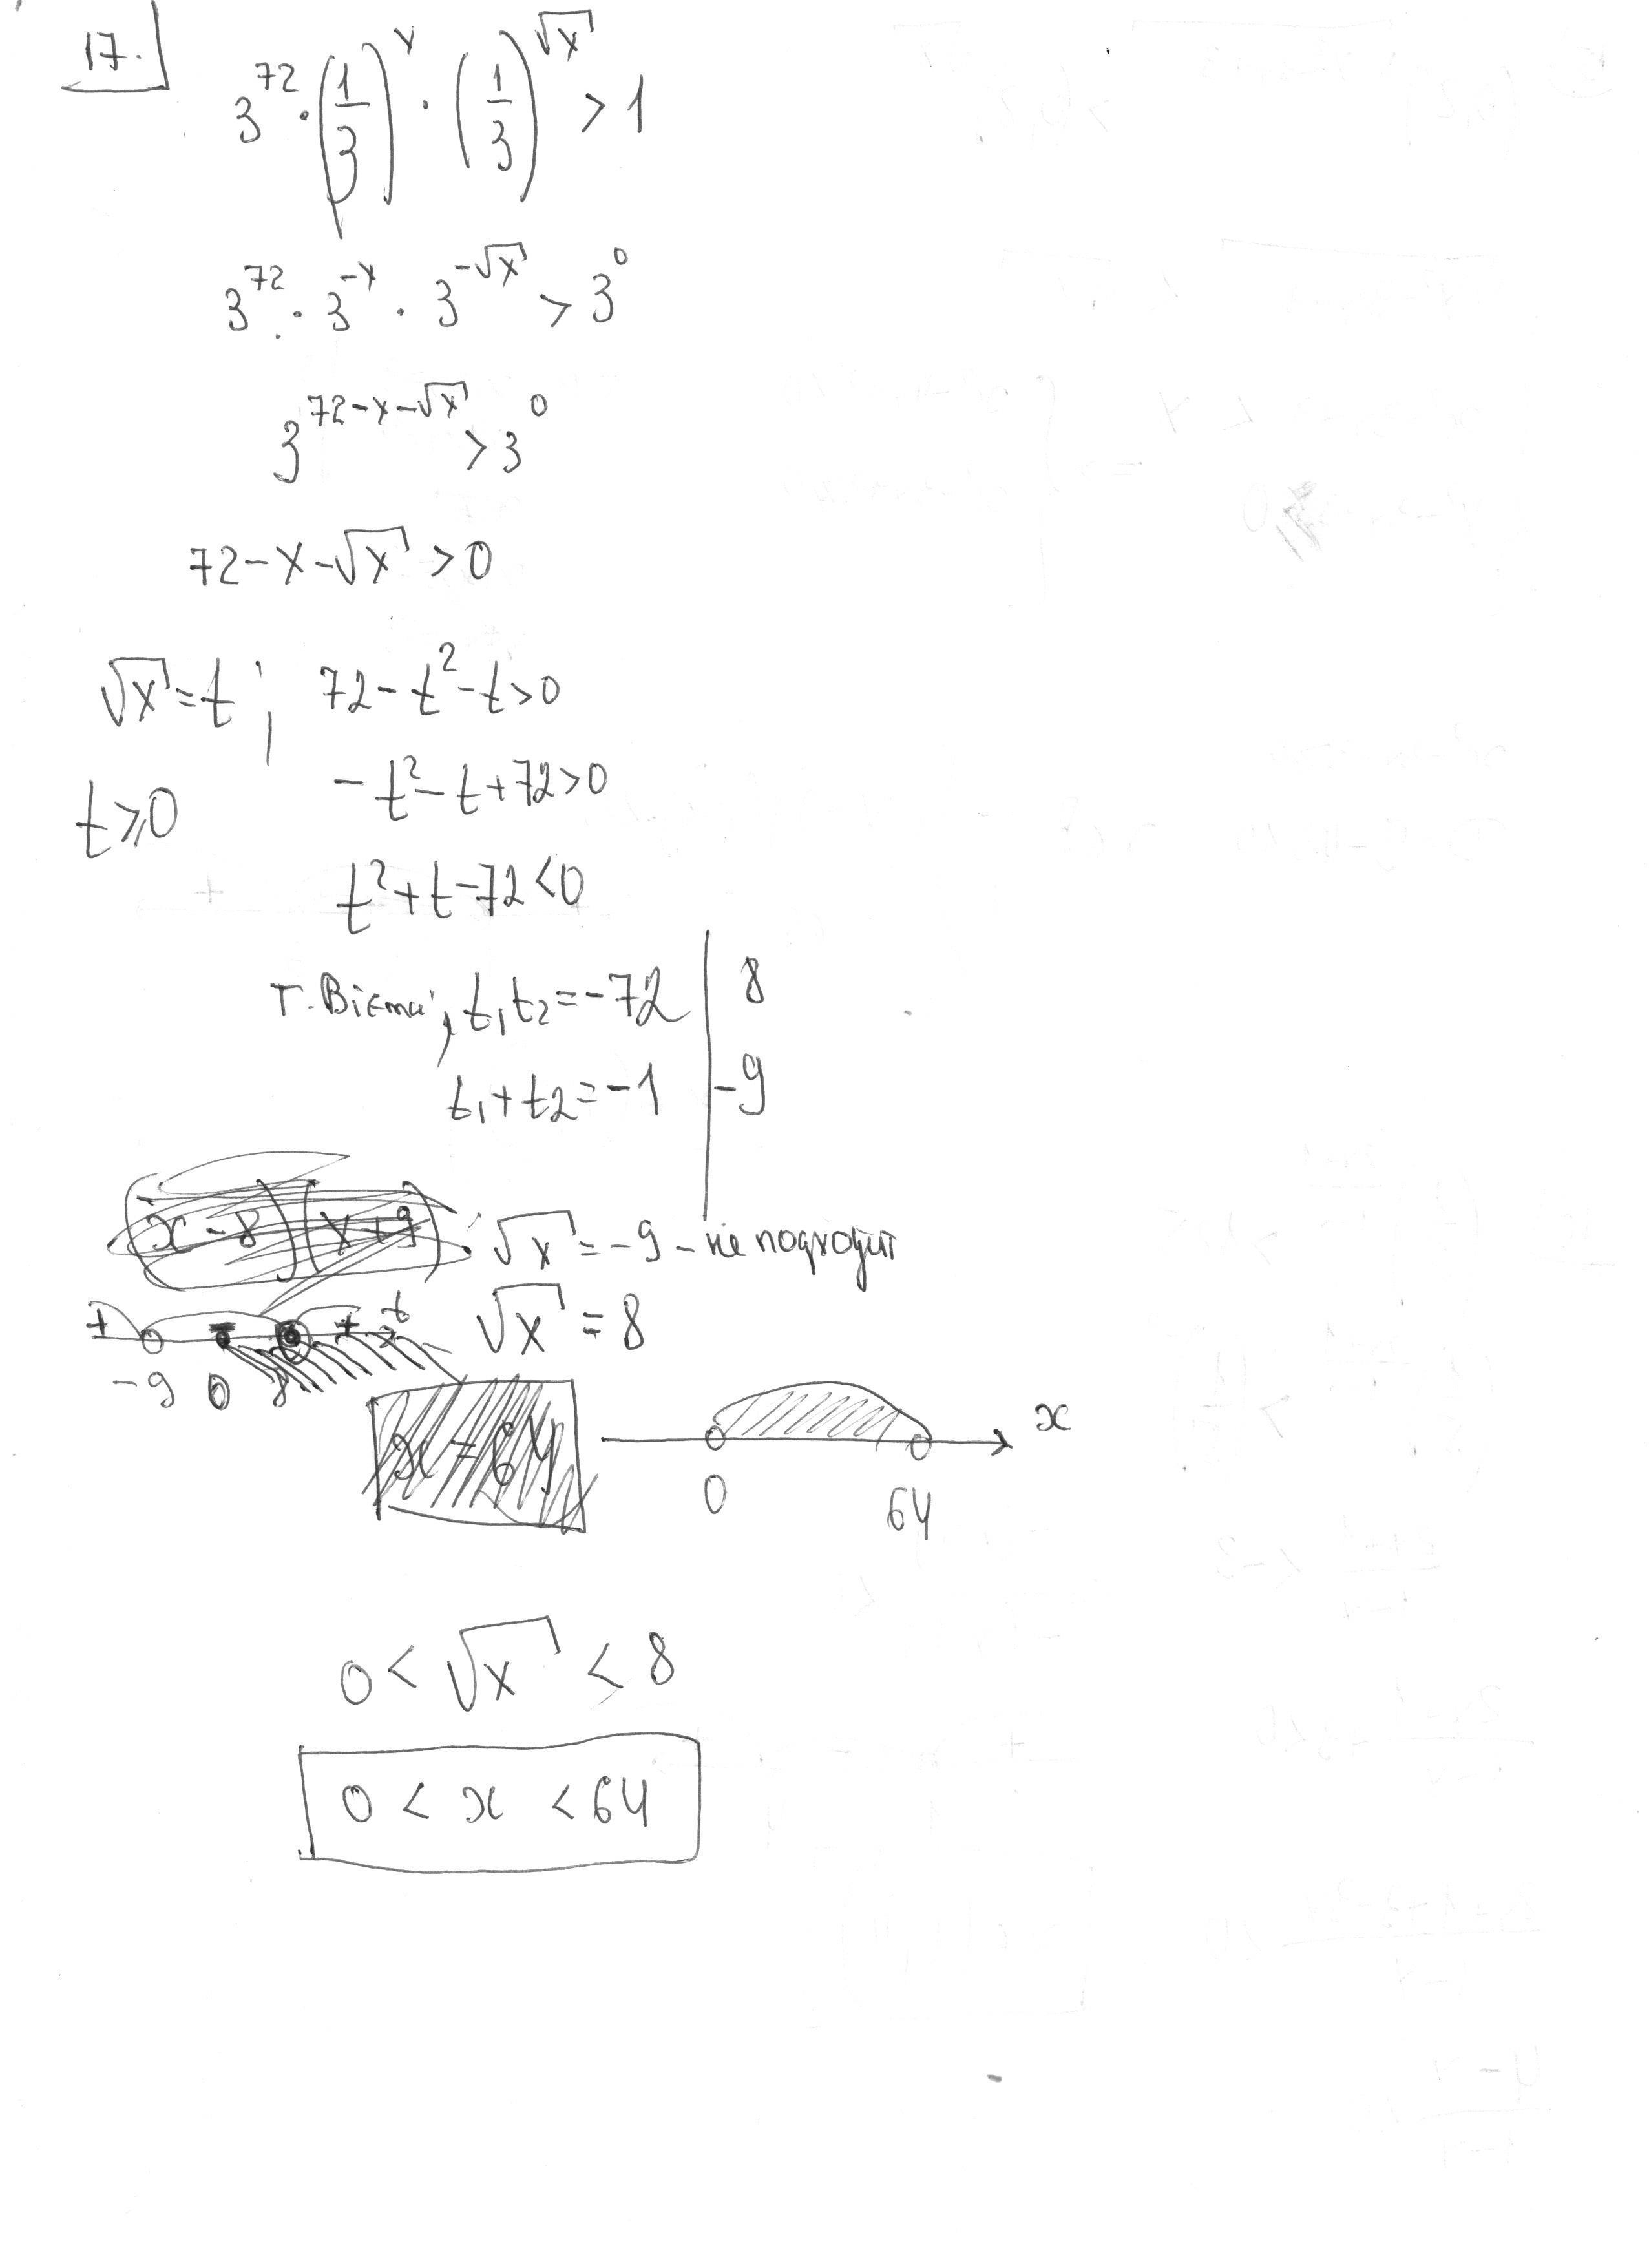 17.
3^72 · (1/3)^x · (1/3)^√x > 1
3^72 · 3^-x · 3^-√x > 3^0
3^72-x-√x > 3^0
72-x-√x > 0
√x = t ; 72 - t² - t > 0
t ⩾ 0 - t² - t + 72 > 0
t² + t - 72 < 0
т. Вієта; t₁t₂ = -72 | 8
t₁ + t₂ = -1 | -9
(x - 8)(x + 9) √x = -9 - не подходит
+ - + t √x = 8
-9 0 8
x = 64 x
0 64
0 < √x < 8
0 < x < 64